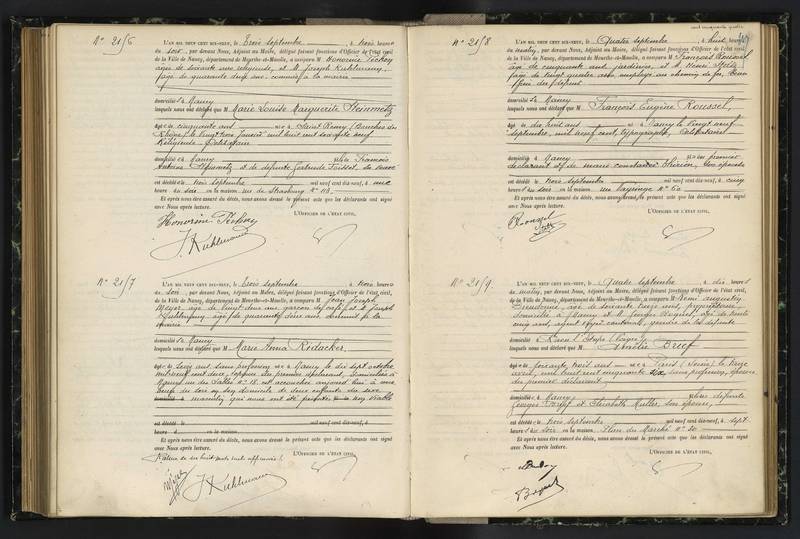 N° 2156
L'AN MIL NEUF CENT DIX-NEUF, le Trois septembre, à trois heures
du soir, par devant Nous, Adjoint au Maire, délégué faisant fonctions d'Officier de l'état civil,
de la Ville de Nancy, département de Meurthe-et-Moselle, a comparu M Honorine
âgée de soixante ans religieuse, et M Joseph Kuhlmann,
âgé de quarante deux ans, commis à la mairie
domicilié à Nancy
lesquels nous ont déclaré que M Marie Louise Marguerite Steinmetz
âgée de cinquante ans née à Saint Remy (Bouches du
Rhône) le vingt trois Janvier mil huit cent soixante neuf
Religieuse Célibataire
domiciliée à Nancy fille de François
Antoine Steinmetz et de défunte Gertrude sa veuve
est décédée le trois septembre mil neuf cent dix-neuf, à une
heure du soir en la maison rue de Strasbourg N° 113
Et après nous être assuré du décès, nous avons dressé le présent acte que les déclarants ont signé
avec Nous après lecture.
L'OFFICIER DE L'ÉTAT CIVIL,
Honorine
J. Kuhlmann
N° 2157
L'AN MIL NEUF CENT DIX-NEUF, le Trois septembre à trois heures
du soir, par devant Nous, Adjoint au Maire, délégué faisant fonctions d'Officier de l'état civil,
de la Ville de Nancy, département de Meurthe-et-Moselle, a comparu M Jean Joseph
Meyer, âgé de vingt deux ans, garçon de café, et M Joseph
Kuhlmann, âgé de quarante deux ans, commis à la
mairie
domicilié à Nancy
lesquels nous ont déclaré que M Marie Anna Redacker
âgée de seize ans sans profession née à Nancy le dix sept octobre
mil neuf cent deux,
Nancy rue des Sables N° 18 est accouchée aujourd'hui à une
heure du soir en son domicile de deux enfants du sexe
masculin qui nous ont été présentés non viable
est décédé le mil neuf cent dix-neuf, à
heure en la maison
Et après nous être assuré du décès, nous avons dressé le présent acte que les déclarants ont signé
avec Nous après lecture.
L'OFFICIER DE L'ÉTAT CIVIL,
J. Kuhlmann
N° 2158
L'AN MIL NEUF CENT DIX-NEUF, le Quatre septembre, à huit heures
du matin, par devant Nous, Adjoint au Maire, délégué faisant fonctions d'Officier de l'état civil,
de la Ville de Nancy, département de Meurthe-et-Moselle, a comparu M François Roussel
âgé de cinquante ans, jardinier, et M Henri
âgé de vingt quatre ans employé au chemin de fer,
du défunt
domicilié à Nancy
lesquels nous ont déclaré que M François Eugène Roussel,
âgé de dix huit ans né à Nancy le vingt neuf
septembre, mil neuf cent, typographe, Célibataire
domicilié à Nancy fils du premier
déclarant et de Marie Constance Thirion, son épouse
est décédé le trois septembre mil neuf cent dix-neuf, à cinq
heures du soir en la maison rue N° 60
Et après nous être assuré du décès, nous avons dressé le présent acte que les déclarants ont signé
avec Nous après lecture.
L'OFFICIER DE L'ÉTAT CIVIL,
Roussel
N° 2159
L'AN MIL NEUF CENT DIX-NEUF, le Quatre septembre, à dix heures
du matin, par devant Nous, Adjoint au Maire, délégué faisant fonctions d'Officier de l'état civil,
de la Ville de Nancy, département de Meurthe-et-Moselle, a comparu M Rémi Augustin
âgé de soixante treize ans, propriétaire,
domicilié à Nancy et M Georges âgé de trente
cinq ans, agent voyer cantonal, gendre de la défunte
domicilié à Raon l'Etape (Vosges)
lesquels nous ont déclaré que M Amélie Brief
âgée de soixante trois ans née à Paris (Seine) le treize
avril, mil huit cent cinquante six sans profession, épouse
du premier déclarant
domiciliée à Nancy fille de défunts
Georges Brief et Elisabeth Muller, son épouse,
est décédée le trois septembre mil neuf cent dix-neuf, à sept
heures du soir en la maison Place du Marché N° 20
Et après nous être assuré du décès, nous avons dressé le présent acte que les déclarants ont signé
avec Nous après lecture.
L'OFFICIER DE L'ÉTAT CIVIL,